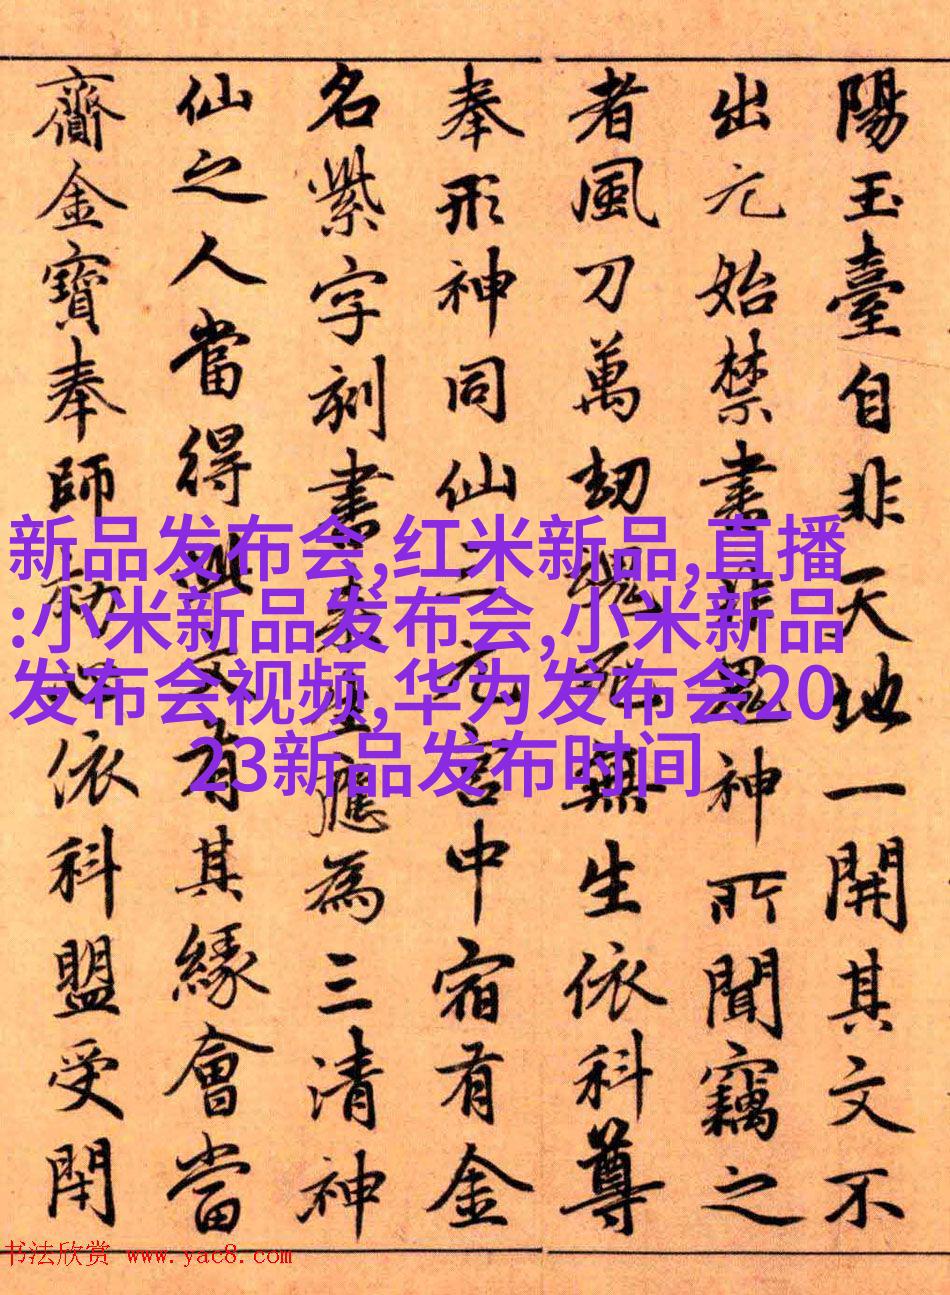 陽玉臺自非天地一開其文不
出元始禁書非鬼神所聞竊之
者風刀萬劫魂死無生依科尊
奉形神同仙三元宮中宿有金
名紫字刻書應為三清神
仙之人當得此文有其緣會當
齎金寶奉師依科盟受閇
新品发布会,红米新品,直播
:小米新品发布会,小米新品
发布会视频,华为发布会20
23新品发布时间
书法欣赏 www.yac8.com